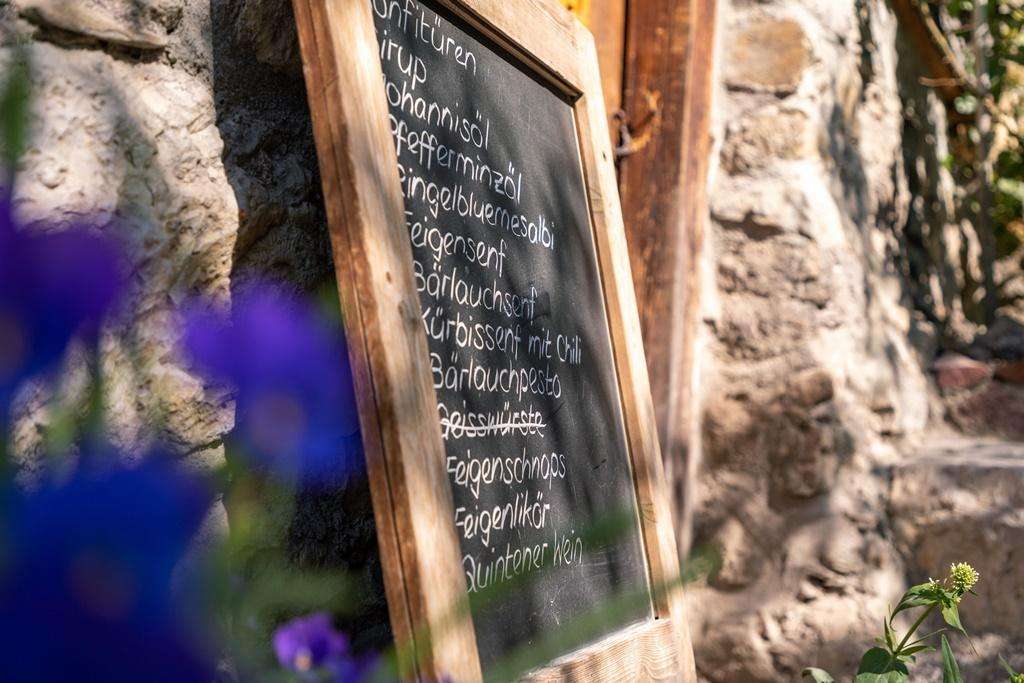 onfitüren
irup
ohannisöl
Pfefferminzöl
Ringelbluemesalbi
Feigensenf
Bärlauchsenf
Kürbissenf mit Chili
Bärlauchpesto
Geisswürste
Feigenschnaps
Feigenlikör
Quintener Wein